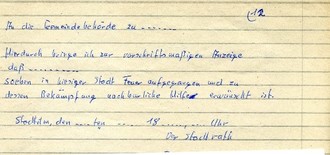 12
An die Gemeindebehörde zu ........
Hierdurch bringe ich zur vorschriftsmäßigen Anzeige
daß ............
soeben in hiesiger Stadt Feuer aufgegangen und zu
dessen Bekämpfung nachbarliche Hilfe erwünscht ist.
Stadtilm, den ....ten ........ 18 ........ Uhr
Der Stadtrath